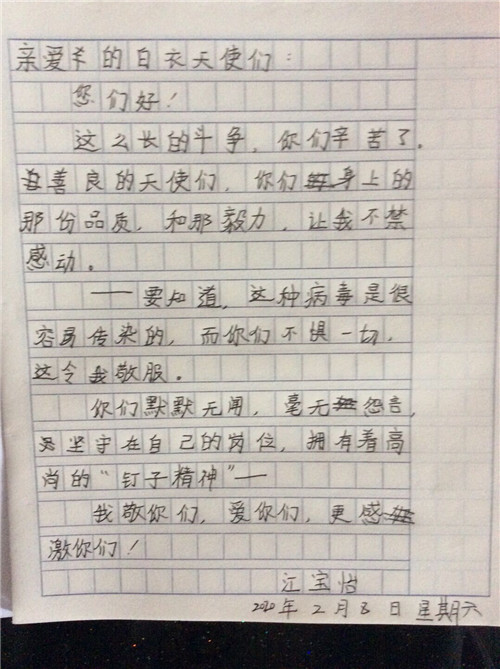 亲爱的白衣天使们：
您们好！
这么长的斗争，你们辛苦了。
善良的天使们，你们身上的
那份品质，和那毅力，让我不禁
感动。
——要知道，这种病毒是很
容易传染的，而你们不惧一切，
这令我敬服。
你们默默无闻，毫无怨言，
坚守在自己的岗位，拥有着高
尚的“钉子精神”—
我敬你们，爱你们，更感
激你们！
江宝怡
2020年2月8日星期六